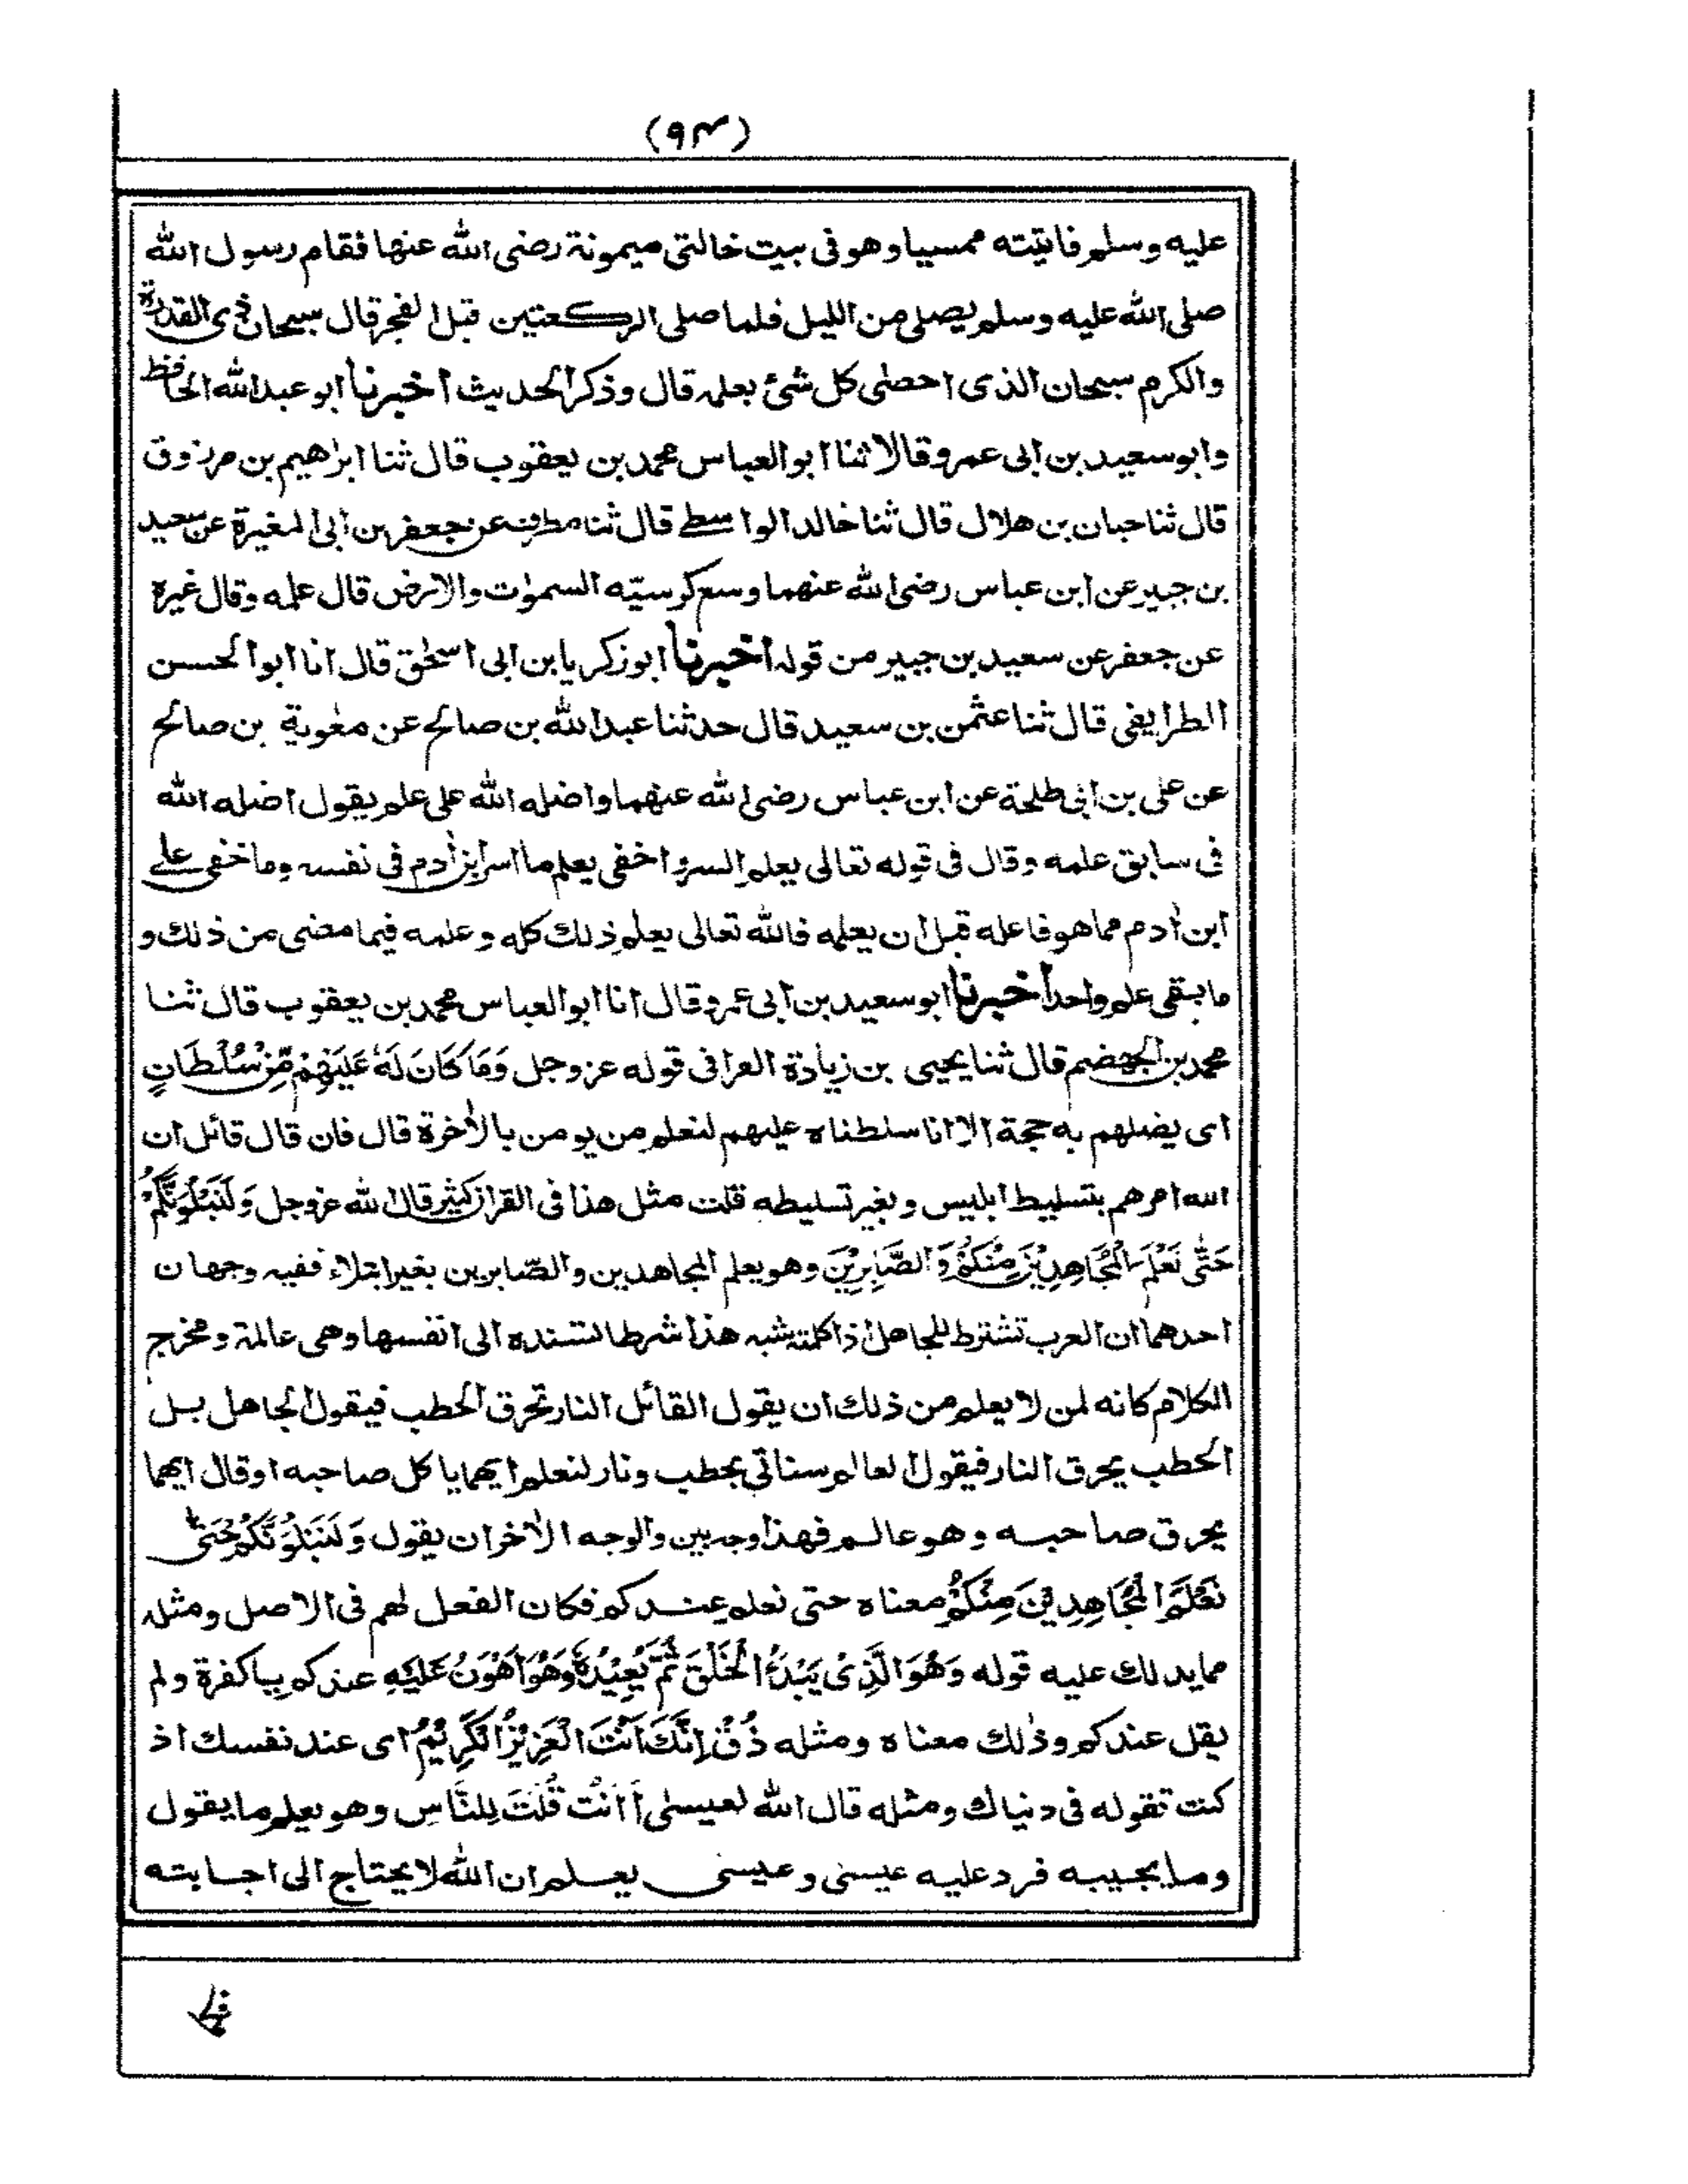 (٩٣)
عليه وسلم فاتيته ممسيا وهو فى بيت خالتى ميمونة رضى الله عنها فقام رسول الله
صلى الله عليه وسلم يصلى من الليل فلما صلى الركعتين قبل الفجر قال سبحان ذى القدرة
والكرم سبحان الذى احصى كل شئ بعلمه قال وذكر الحديث اخبرنا ابو عبد الله الحافظ
وابو سعيد بن ابى عمرو قالا ثنا ابو العباس محمد بن يعقوب قال ثنا ابرٰهيم بن مرزوق
قال ثنا حبان بن هلال قال ثنا خالد الواسطے قال ثنا مطرف عن جعفر بن ابى المغيرة عن سعيد
بن جبير عن ابن عباس رضى الله عنهما وسع كرسيّه السمٰوٰت والارض قال علمه وقال غيره
عن جعفر عن سعيد بن جبير من قوله اخبرنا ابو زكريا بن ابى اسحٰق قال انا ابو الحسن
الطرايفى قال ثنا عثمٰن بن سعيد قال حدثنا عبد الله بن صالح عن معٰوية بن صالح
عن على بن ابى طلحة عن ابن عباس رضى الله عنهما واضله الله على علم يقول اضله الله
فى سابق علمه وقال فى قوله تعالى يعلم السر واخفى يعلم ما اسر ابن اٰدم فى نفسه وما خفى علے
ابن اٰدم مما هو فاعله قبل ان يعلمه فالله تعالى يعلم ذلك كله وعلمه فيما مضى من ذلك و
ما بقى علم واحد اخبرنا ابو سعيد بن ابى عمرو قال انا ابو العباس محمد بن يعقوب قال ثنا
محمد بن الجهضم قال ثنا يحيى بن زيادة الفرا فى قوله عز وجل وَمَا كَانَ لَهٗ عَلَيْهِمْ مِّنْ سُلْطَانٍ
اى يضلهم به حجة الا انا سلطناه عليهم لنعلم من يومن بالاٰخرة قال فان قال قائل ان
الله امرهم بتسليط ابليس وبغير تسليطه قلت مثل هذا فى القراٰن كثير قال الله عز وجل وَلَنَبْلُوَنَّكُمْ
حَتّٰى نَعْلَمَ الْمُجَاهِدِيْنَ مِنْكُمْ وَالصَّابِرِيْنَ وهو يعلم المجاهدين والصّابرين بغير ابتلاء ففيه وجهان
احدهما ان العرب تشترط للجاهل اذا كلمته شبه هذا شرطا لتسنده الى انفسها وهى عالمة ومخرج
الكلام كانه لمن لا يعلم من ذلك ان يقول القائل النار تحرق الحطب فيقول الجاهل بل
الحطب يحرق النار فيقول العالم سناتى بحطب ونار لنعلم ايهما ياكل صاحبه او قال ايهما
يحرق صاحبه وهو عالم فهذا وجه بين والوجه الاٰخر ان يقول وَلَنَبْلُوَنَّكُمْ حَتّٰى
نَعْلَمَ الْمُجَاهِدِيْنَ مِنْكُمْ معناه حتى نعلم عندكم فكان الفعل لهم فى الاصل ومثله
مما يدلك عليه قوله وَهُوَ الَّذِىْ يَبْدَؤُا الْخَلْقَ ثُمَّ يُعِيْدُهٗ وَهُوَ اَهْوَنُ عَلَيْهِ عندكم يا كفرة ولم
يقل عندكم وذٰلك معناه ومثله ذُقْ اِنَّكَ اَنْتَ الْعَزِيْزُ الْكَرِيْمُ اى عند نفسك اذ
كنت تقوله فى دنياك ومثله قال الله لعيسٰى أَ اَنْتَ قُلْتَ لِلنَّاسِ وهو يعلم ما يقول
وما يجيبه فرد عليه عيسٰى وعيسٰى يعلم ان الله لا يحتاج الى اجابته